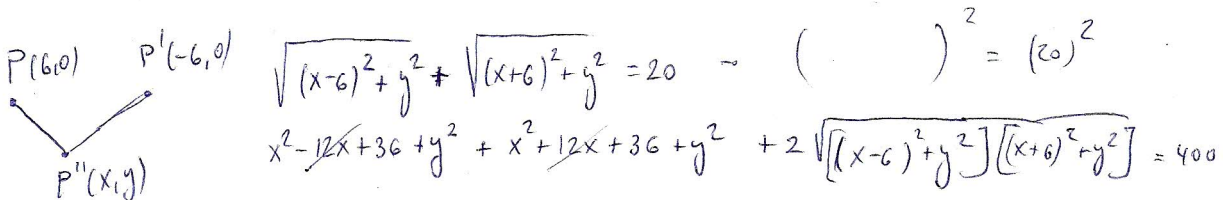 P(6,0) P'(-6,0) √((x-6)²+y²) + √((x+6)²+y²) = 20 ~ ( )² = (20)²
P''(x,y) x²-12x+36+y² + x²+12x+36+y² + 2√([(x-6)²+y²][(x+6)²+y²]) = 400